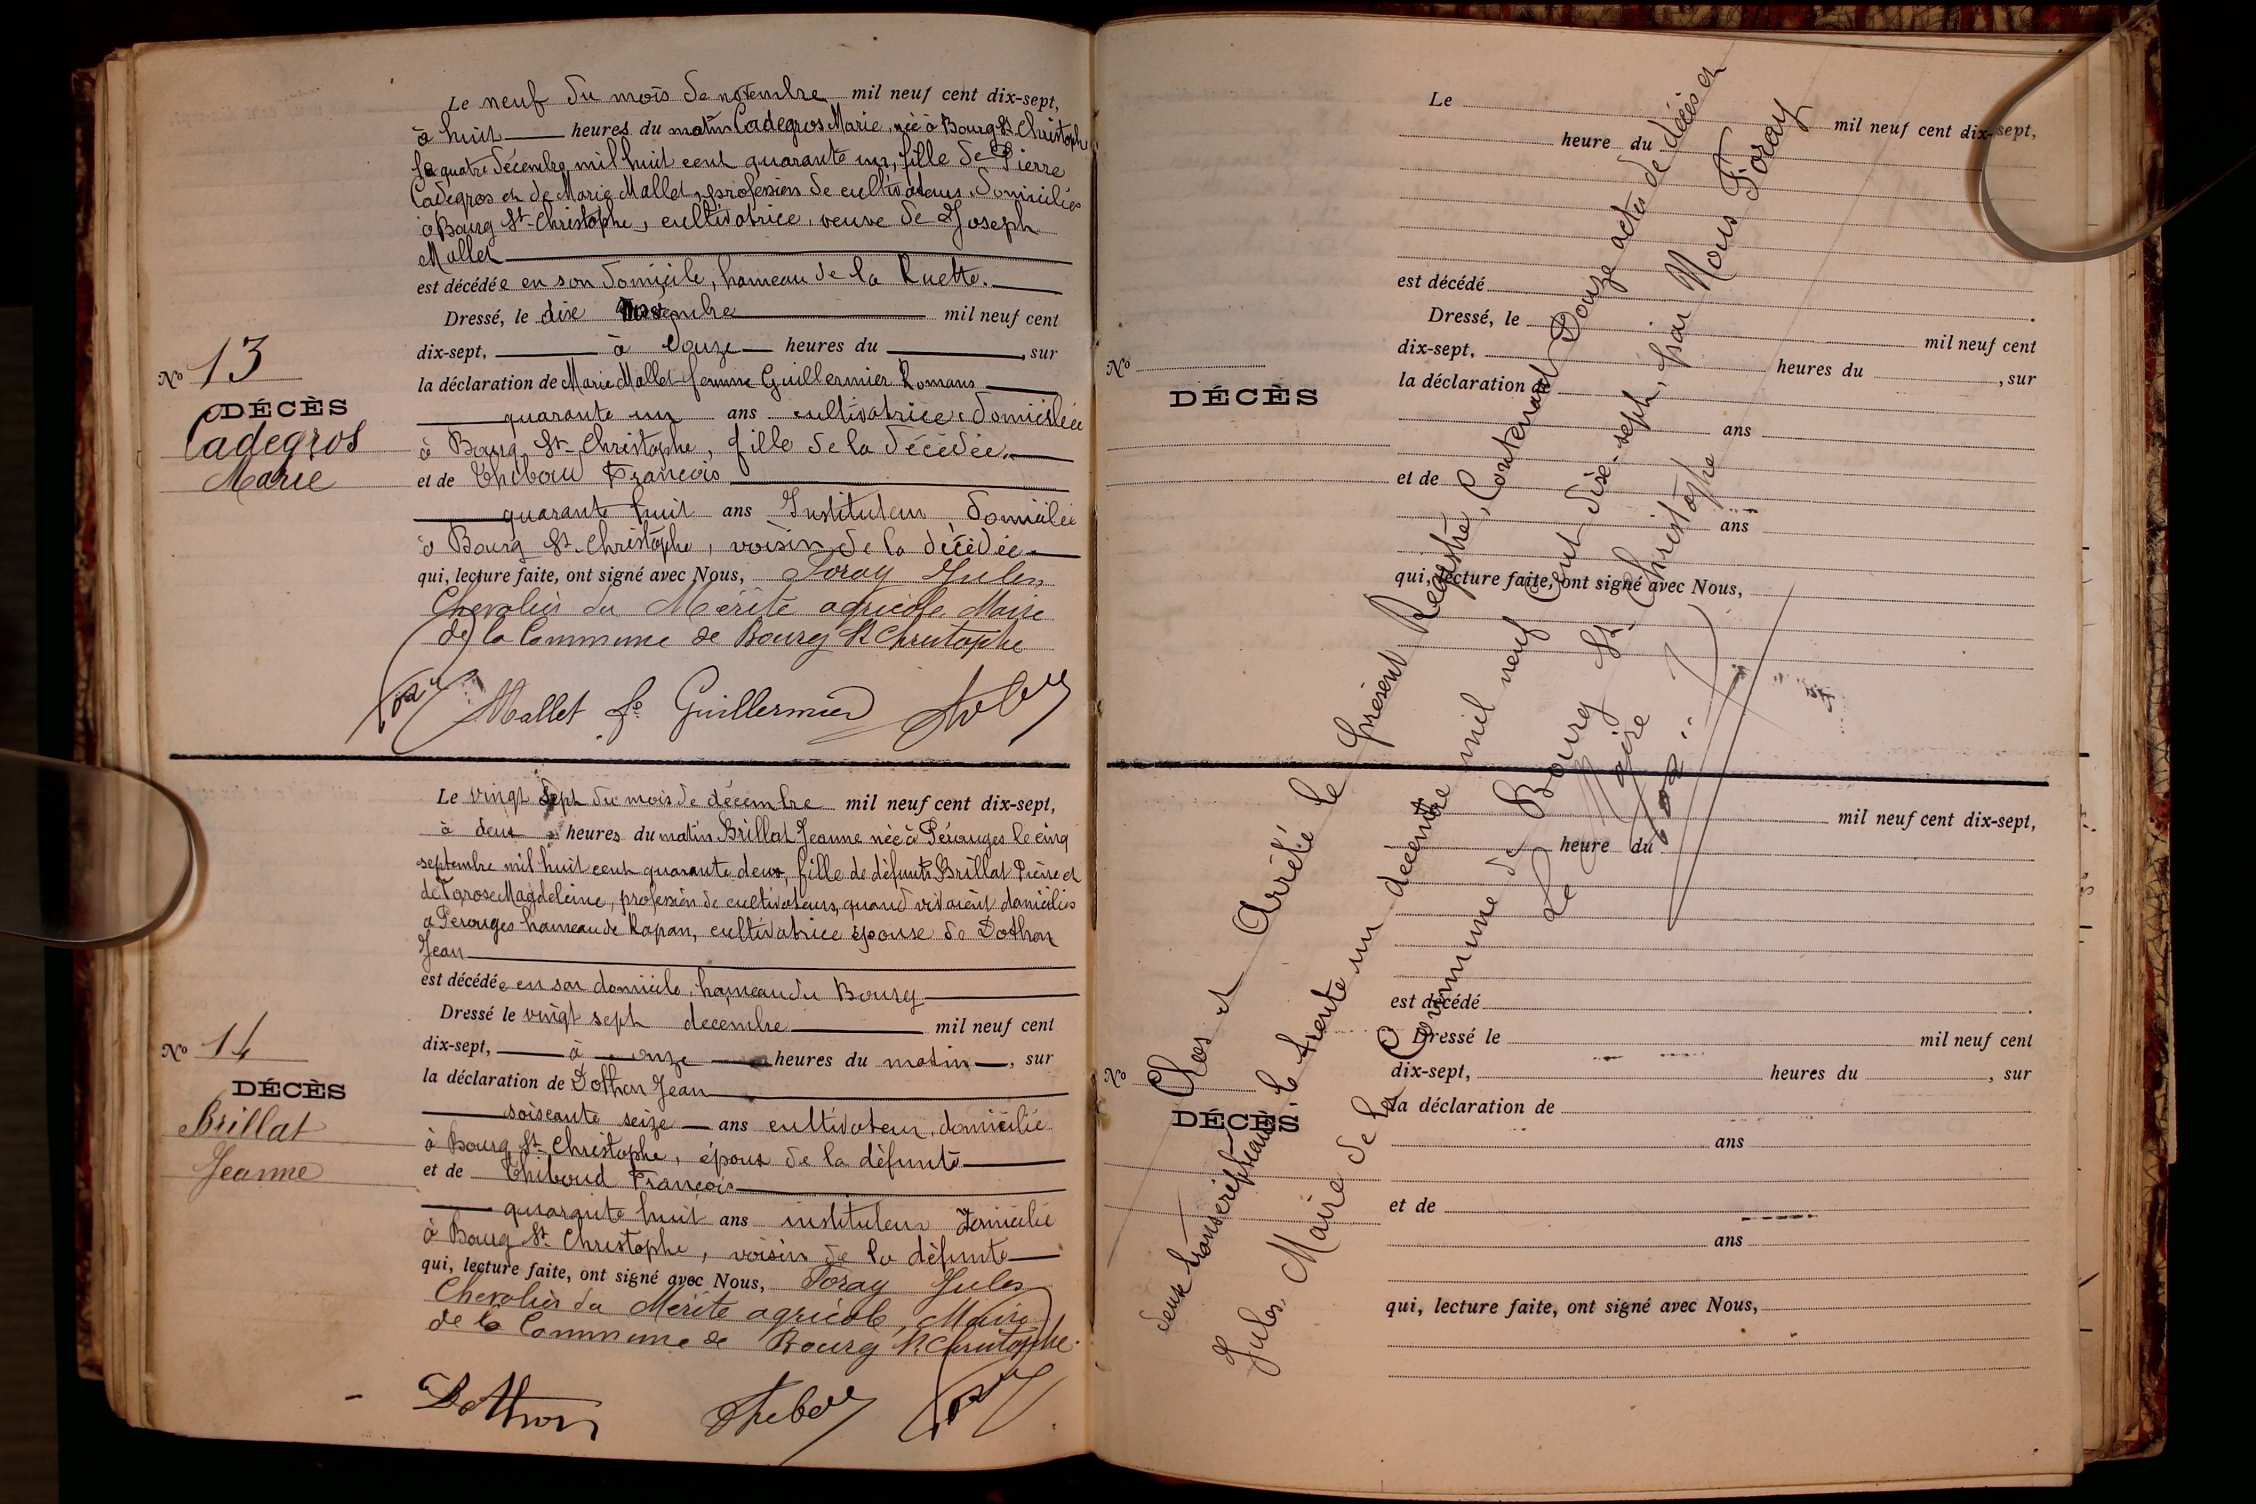 Le neuf du mois de novembre mil neuf cent dix-sept,
à huit heures du matin Cadegros Marie, née à Bourg-St-Christophe
le quatre décembre mil huit cent quarante un, fille de Pierre
Cadegros et de Marie Mallet, profession de cultivateurs, domiciliés
à Bourg St-Christophe, cultivatrice, veuve de Joseph
Mallet
est décédée en son domicile, hameau de la Ruette.
Dressé, le dix novembre mil neuf cent
dix-sept, à douze heures du , sur
la déclaration de Marie Mallet femme Guillermier Romans
quarante un ans cultivatrice domiciliée
à Bourg St-Christophe, fille de la décédée.
et de Thiboud François
quarante huit ans Instituteur domicilié
à Bourg St-Christophe, voisin de la décédée.
qui, lecture faite, ont signé avec Nous, Foray Jules
Chevalier du Mérite agricole, Maire
de la Commune de Bourg St Christophe
Nº 13
DÉCÈS
Cadegros
Marie
Foray Mallet fe Guillermier
Le vingt sept du mois de décembre mil neuf cent dix-sept,
à deux heures du matin Brillat Jeanne née à Pérouges le cinq
septembre mil huit cent quarante deux, fille de défunts Brillat Pierre et
de Magdeleine, profession de cultivateurs, quand vivaient domiciliés
à Perouges hameau de Rapan, cultivatrice épouse de Dothon
Jean
est décédée en son domicile, hameau du Bourg
Dressé le vingt sept decembre mil neuf cent
dix-sept, à onze heures du matin, sur
la déclaration de Dothon Jean
soixante seize ans cultivateur, domicilié
à Bourg St-Christophe, époux de la défunte
et de Thiboud François
quarante huit ans instituteur domicilié
à Bourg St-Christophe, voisin de la défunte
qui, lecture faite, ont signé avec Nous, Foray Jules
Chevalier du Mérite agricole, Maire
de la Commune de Bourg St Christophe.
Nº 14
DÉCÈS
Brillat
Jeanne
Dothon Foray
Le mil neuf cent dix-sept,
heure du
est décédé .
Dressé, le mil neuf cent
dix-sept, heures du , sur
la déclaration de
ans
et de
ans
qui, lecture faite, ont signé avec Nous,
Nº
DÉCÈS
mil neuf cent dix-sept,
heure du
est décédé .
Dressé le mil neuf cent
dix-sept, heures du , sur
la déclaration de
ans
et de
ans
qui, lecture faite, ont signé avec Nous,
Nº
DÉCÈS
Clos et Arrêté le présent Registre, Contenant Douze actes de décès et
deux transcriptions, le trente un décembre mil neuf cent dix-sept, par Nous Foray
Jules, Maire de la Commune de Bourg St-Christophe
Le Maire
Foray